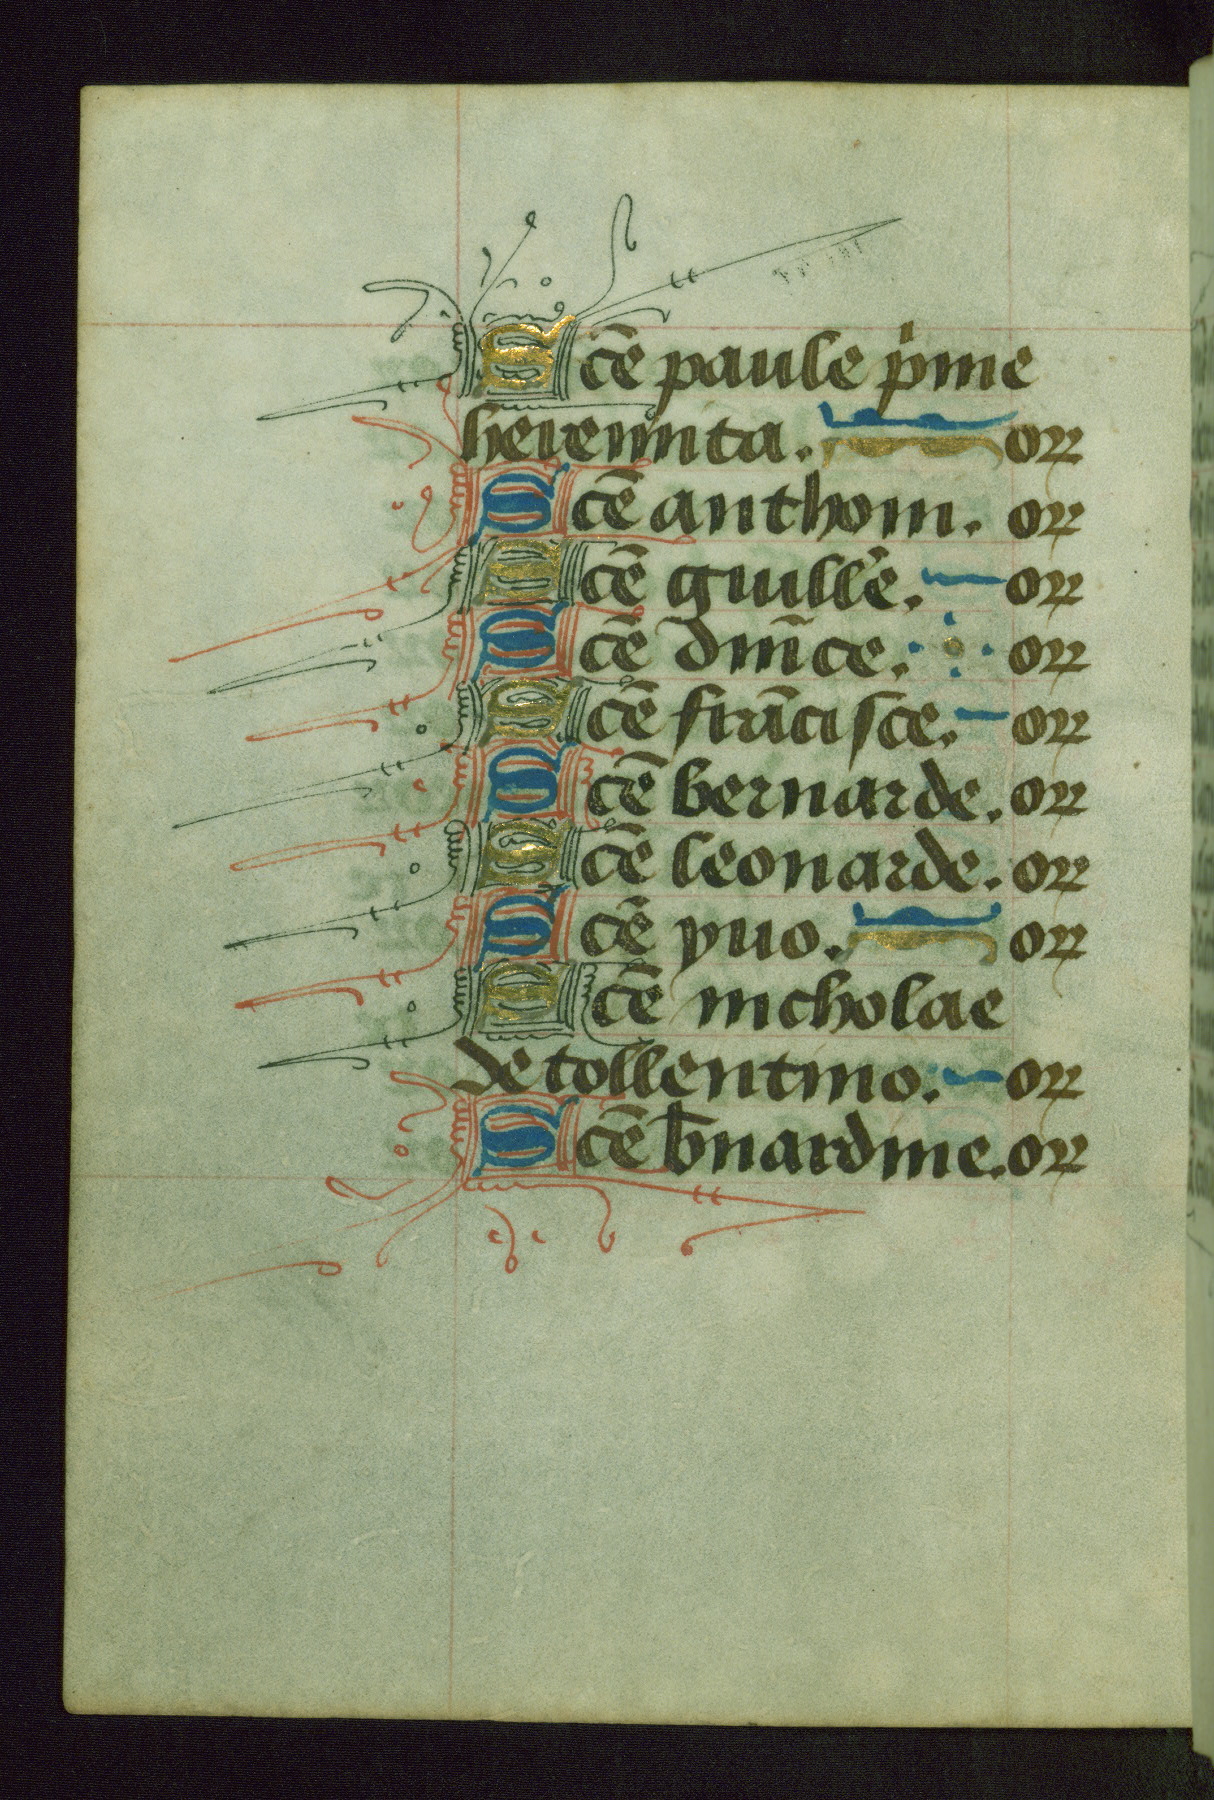 Scē paule pͥme
heremita. or
Scē anthoni. or
Scē guillē. or
Scē dmīce. or
Scē frācisce. or
Scē bernarde. or
Scē leonarde. or
Scē yuo. or
Scē nicholae
de tollentino. or
Scē b̄nardine. or